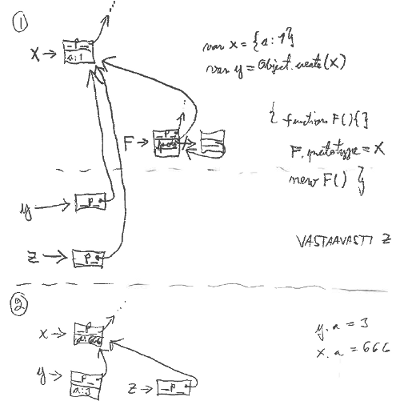 ①
_P_
X → a:1
var x = {a:1}
var y = Object.create(X)
F →
{ function F(){}
F.prototype = X
new F() }
y → _P_
z → _P_
VASTAAVASTI Z
②
x → _P_
a:666
y → _P_
a:3
z → _P_
y.a = 3
x.a = 666